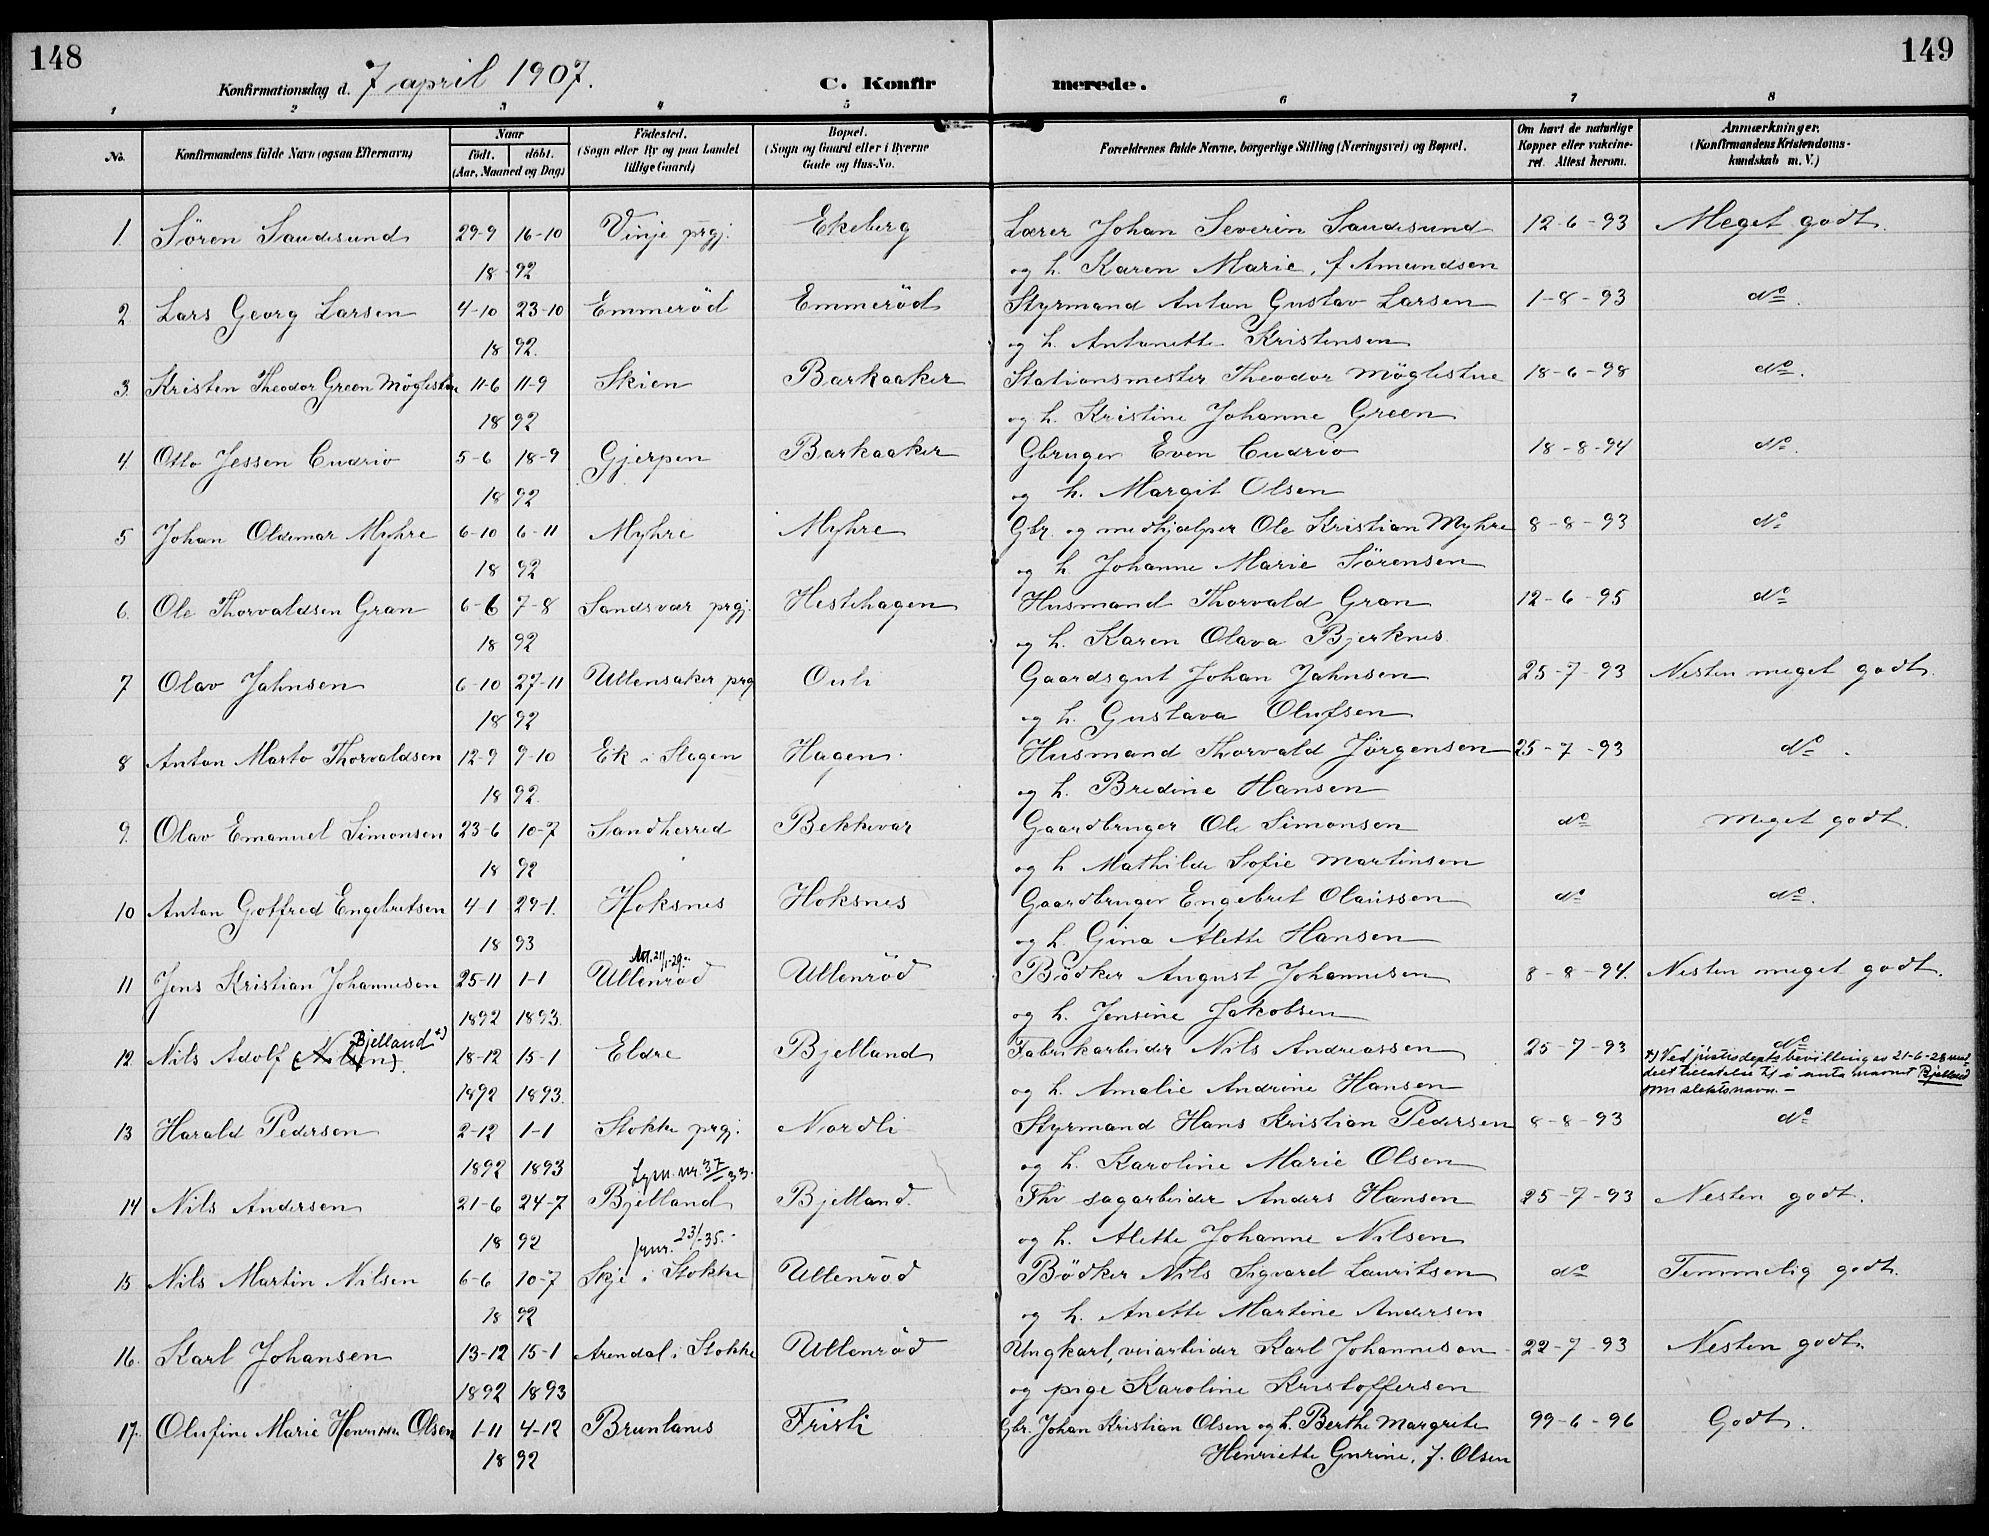 148
149
Konfirmationsdag d. 7 april 1907.
C. Konfir merede.
1 2 3 4 5 6 7 8
No.
Konfirmandens fulde Navn (ogsaa Efternavn)
Naar
født. døbt.
(Aar, Maaned og Dag)
Fødested.
(Sogn eller By og paa Landet
tillige Gaard)
Bopæl.
(Sogn og Gaard eller i Byerne
Gade og Hus-No.
Forældrenes fulde Navne, borgerlige Stilling (Næringsvei) og Bopæl.
Om havt de naturlige
Kopper eller vakcine-
ret. Attest herom.
Anmærkninger.
(Konfirmandens Kristendoms-
kundskab m. V.)
1. Sören Sandesund 29-9 16-10 Vinje prgj. Ekeberg Lærer Johan Severin Sandesund 12-6-93 Meget godt.
18 92 og h. Karen Marie, f Amundsen
2. Lars Georg Larsen 4-10 23-10 Emmeröd Emmeröd Styrmand Anton Gustav Larsen 1-8-93 do.
18 92. og h. Antonette Kristensen
3. Kristen Theodor Green Möglestue 11-6 11-9 Skien Barkaaker Stationsmester Theodor Möglestue 18-6-98 do.
18 92 og h. Kristine Johanne Green
4. Otto Jessen Cudrio 5-6 18-9 Gjerpen Barkaaker Gbruger Even Cudrio 18-8-94 do.
18 92 og h. Margit Olsen
5 Johan Oldemar Myhre 6-10 6-11 Myhre Myhre Gbr. og medhjælper Ole Kristian Myhre 8-8-93 do
18 92 og h Johanne Marie Sörensen
6. Ole Thorvaldsen Gran 6-6 7-8 Sandsvær prgj. Hestehagen Husmand Thorvald Gran 12-6-95 do
18 92 og h. Karen Olava Bjerknes
7 Olav Jahnsen 6-10 27-11 Ullensaker prg Ouli Gaardsgut Johan Jahnsen 25-7-93 Nesten meget godt.
18 92 og h. Gustava Olufsen
8 Anton Marto Thorvaldsen 12-9 9-10 Ek i Slagen Hagen. Husmand Thorvald Jörgensen 25-7-93 do.
18 92. og h. Bredine Hansen
9. Olav Emanuel Simonsen 23-6 10-7 Sandherred Bekkevar Gaardbruger Ole Simonsen do meget godt.
18 92 og h Mathilde Sofie Martinsen
10 Anton Gotfred Engebretsen 4-1 29-1. Hoksnes Hoksnes Gaardbruger Engebret Olaussen do do.
18 93 og h. Gina Alette Hansen
21/1-29.
11 Jens Kristian Johannesen 25-11 1-1 Ullenröd Ullenröd Bödker August Johannesen 8-8-94. Nesten meget godt.
1892 1893. og h. Jensine Jakobsen
Bjelland *)
12. Nils Adolf (Nilsen). 18-12 15-1 Eldre Bjelland Fabrikarbeider Nils Andreassen 25-7-93 do
*) Ved justisdepts bevilling av 21-6-28 med-
delt tillatelse til å anta navnet Bjelland
som slektsnavn. -
1892 1893. og h. Amalie Andrine Hansen
13 Harald Pedersen 2-12 1-1 Stokke prgj. Nordli Styrmand Hans Kristian Pedersen 8-8-93 do
1892 1893 og h. Karoline Marie Olsen
nr. 37/33.
14 Nils Andersen 21-6 24-7 Bjelland Bjelland. Fhv sagarbeider Anders Hansen 25-7-93 Nesten godt.
18 92 og h. Alette Johanne Nilsen
23/-35.
15 Nils Martin Nilsen 6-6 10-7 Skje i Stokke Ullenröd Bödker Nils Sigvard Lauritsen do Temmelig godt.
18 92 og h. Anette Martine Andersen
16. Karl Johansen 13-12 15-1 Arendal i Stokke Ullenröd Ungkarl, veiarbeider Karl Johannesen 22-7-93 Nesten godt.
1892 1893 og pige Karoline Kristoffersen
17. Olufine Marie Henriette Olsen 1-11 4-12 Brunlanes Fristi Gbr. Johan Kristian Olsen og h. Berthe Margrete 99-6-96 Godt.
18 92 Henriette Gurine, f. Olsen